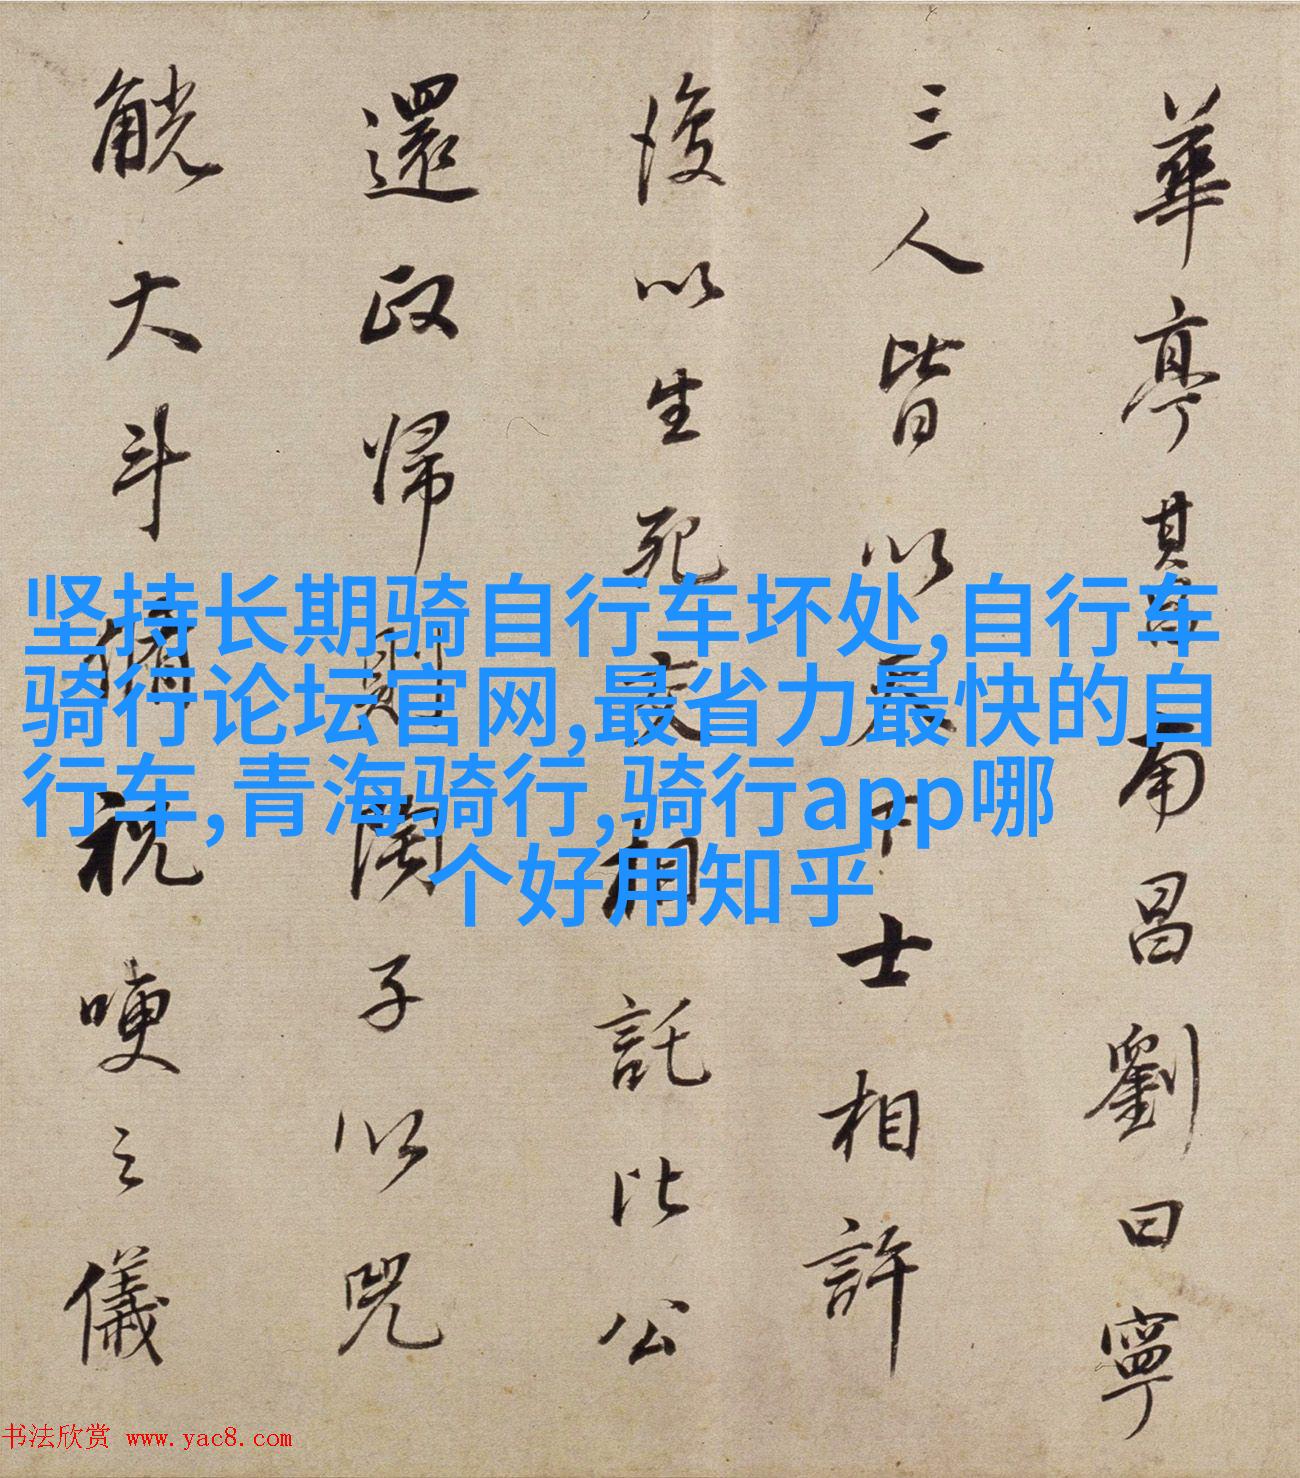 華亭其一曰南昌劉曰寧
三人皆以天下士相許
後以生死交相託比公
還政歸則闔子以兕
觥大斗脩祝哽之儀
坚持长期骑自行车坏处,自行车
骑行论坛官网,最省力最快的自
行车,青海骑行,骑行app哪
个好用知乎
书法欣赏 www.yac8.com